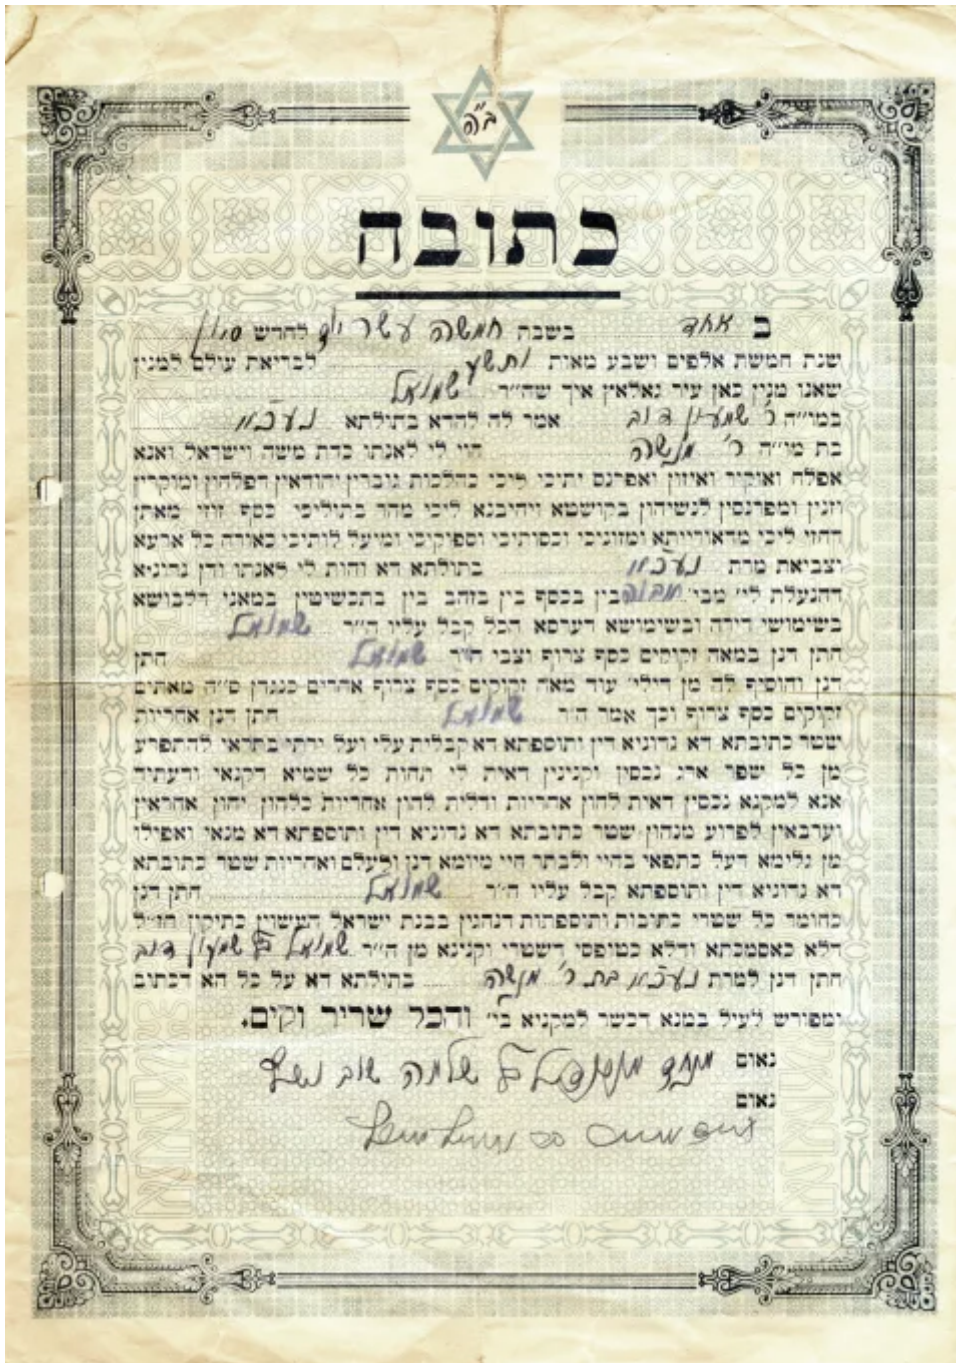 ב"ה
כתובה
ב אחד בשבת חמשה עשר יום לחדש סיון
שנת חמשת אלפים ושבע מאות ותשע לבריאת עולם למנין
שאנו מנין כאן עיר גאלאץ איך שה"ר שמואל
במו"ה ר' שמעון דוב אמר לה להדא בתולתא
בת מו"ה ר' מנשה הוי לי לאנתו כדת משה וישראל ואנא
אפלח ואוקיר ואיזון ואפרנס יתיכי ליכי כהלכות גוברין יהודאין דפלחין ומוקרין
וזנין ומפרנסין לנשיהון בקושטא ויהיבנא ליכי מהר בתוליכי כסף זוזי מאתן
דחזי ליכי מדאורייתא ומזוניכי וכסותיכי וספיקיכי ומיעל לותיכי כאורח כל ארעא
וצביאת מרת בתולתא דא והות לי לאנתו ודן נדוניא
דהנעלת לי' מבי' אבוה בין בכסף בין בזהב בין בתכשיטין במאני דלבושא
בשימושי דירה ובשימושא דערסא הכל קבל עליו ה"ר שמואל
חתן דנן במאה זקוקים כסף צרוף וצבי ה"ר שמואל חתן
דנן והוסיף לה מן דילי' עוד מאה זקוקים כסף צרוף אחרים כנגדן ס"ה מאתים
זקוקים כסף צרוף וכך אמר ה"ר שמואל חתן דנן אחריות
שטר כתובתא דא נדוניא דין ותוספתא דא קבלית עלי ועל ירתי בתראי להתפרע
מן כל שפר ארג נכסין וקנינין דאית לי תחות כל שמיא דקנאי ודעתיד
אנא למקנא נכסין דאית להון אחריות ודלית להון אחריות כלהון יהון אחראין
וערבאין לפרוע מנהון שטר כתובתא דא נדוניא דין ותוספתא דא מנאי ואפילו
מן גלימא דעל כתפאי בחיי ולבתר חיי מיומא דנן ולעלם ואחריות שטר כתובתא
דא נדוניא דין ותוספתא קבל עליו ה"ר שמואל חתן דנן
כחומר כל שטרי כתובות ותוספתות דנהגין בבנת ישראל העשוין כתיקון חז"ל
דלא כאסמכתא ודלא כטופסי דשטרי וקנינא מן ה"ר שמואל בר שמעון דוב
חתן דנן למרת בת ר' מנשה בתולתא דא על כל הא דכתוב
ומפורש לעיל במנא דכשר למקניא בי' והכל שריר וקים.
נאום שלמה שוב
נאום